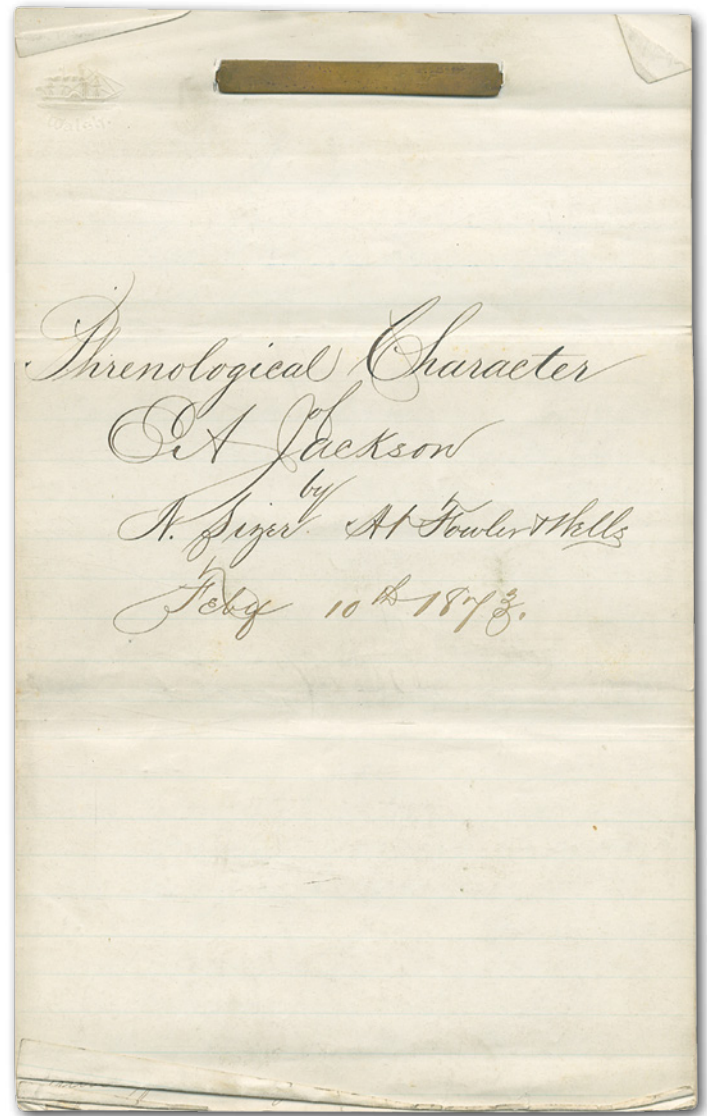 Watch.
Phrenological Character
of
E. A Jackson
by
N. Sizer. At Fowler & Wells
Feby 10th 1873.